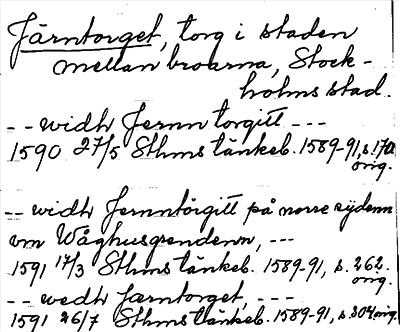 Järntorget, torg i staden
mellan broarna, Stock-
holms stad.
-- widh Jernn torgitt ---
1590 27/5 Sthms tänkeb. 1589-91, s. 170
orig.
-- widh Jernntörgitt på norre sydenn
om Wåghusgrendenn, ---
1591 17/3 Sthms tänkeb. 1589-91, s. 262.
orig.
-- wedh Jærntorget, ---
1591 26/7 Sthms tänkeb. 1589-91, s. 304 orig.